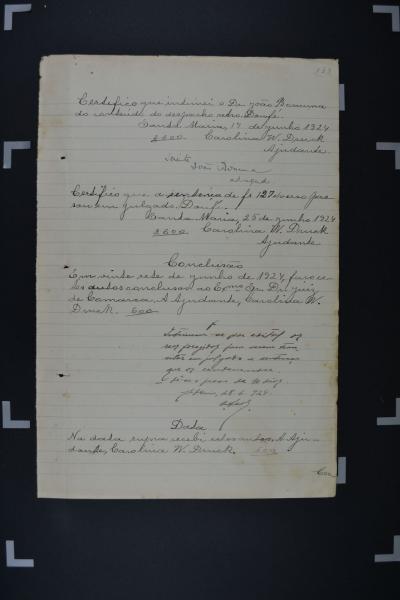 Certifico que intimei o Dr. João Bonuma
do conteúdo do despacho retro. Dou fé.
Santa Maria, 17 de junho 1924
2600 Carolina W. Druck
Ajudante
João Bonuma
Certifico que a sentença de fs 127 verso
sou em julgado. Dou fé.
Santa Maria, 25 de junho 1924
2600 Carolina W. Druck
Ajudante
Conclusão
Em vinte sete de junho de 1924, faço es-
tes autos conclusos ao Exmo Snr. Dr. juiz
de Comarca. A Ajudante, Carolina W.
Druck. 600
por edital os
em julgado a sentença
que os
prazo de 10 dias
28-6-924
Data
Na data supra recebi estes autos. A Aju-
dante, Carolina W. Druck.